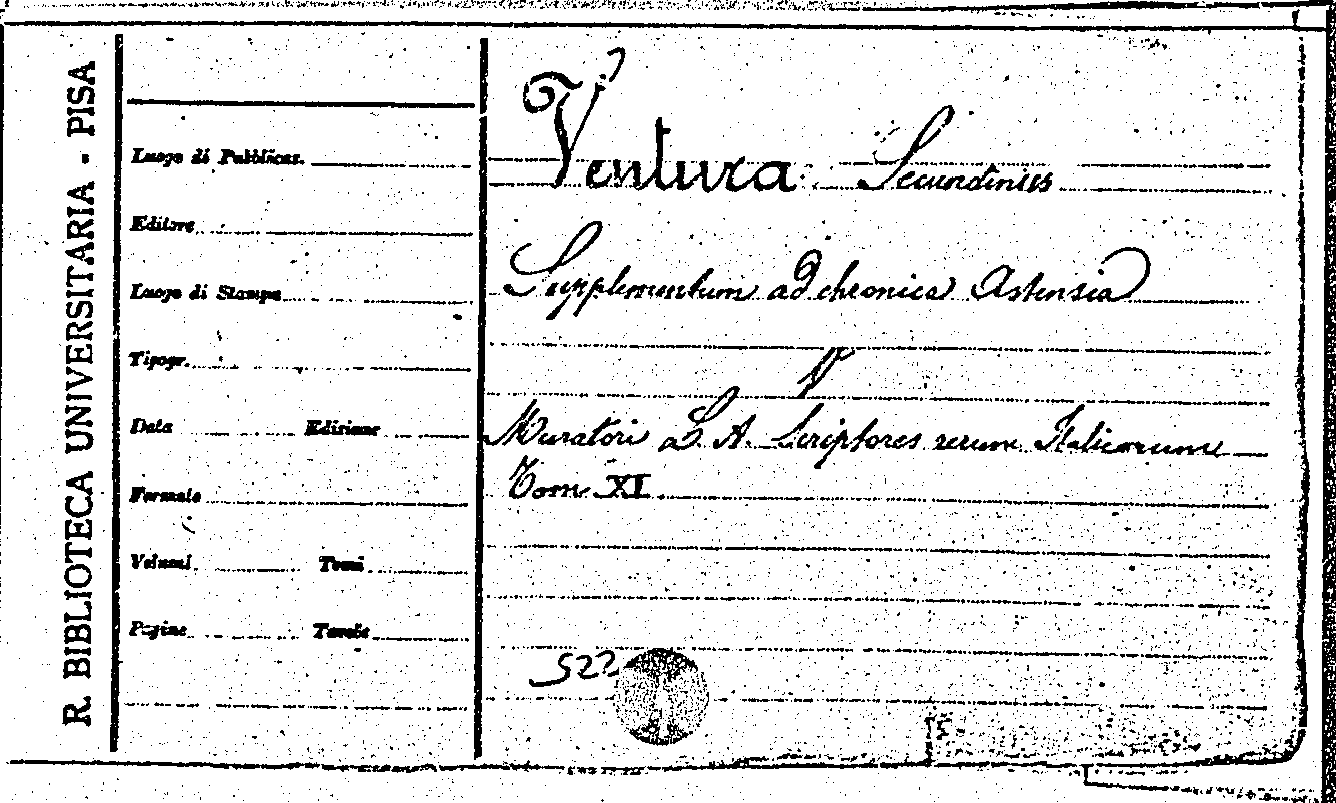 R. BIBLIOTECA UNIVERSITARIA - PISA
Luogo di Pubblicaz.
Editore
Luogo di Stampa
Tipogr.
Data Edizione
Formato
Volumi Tomi
Pagine Tavole
Ventura Secundinus
Supplementum ad chronica Astensia
V
Muratori L. A. Scriptores rerum Italicarum
Tom XI.
522